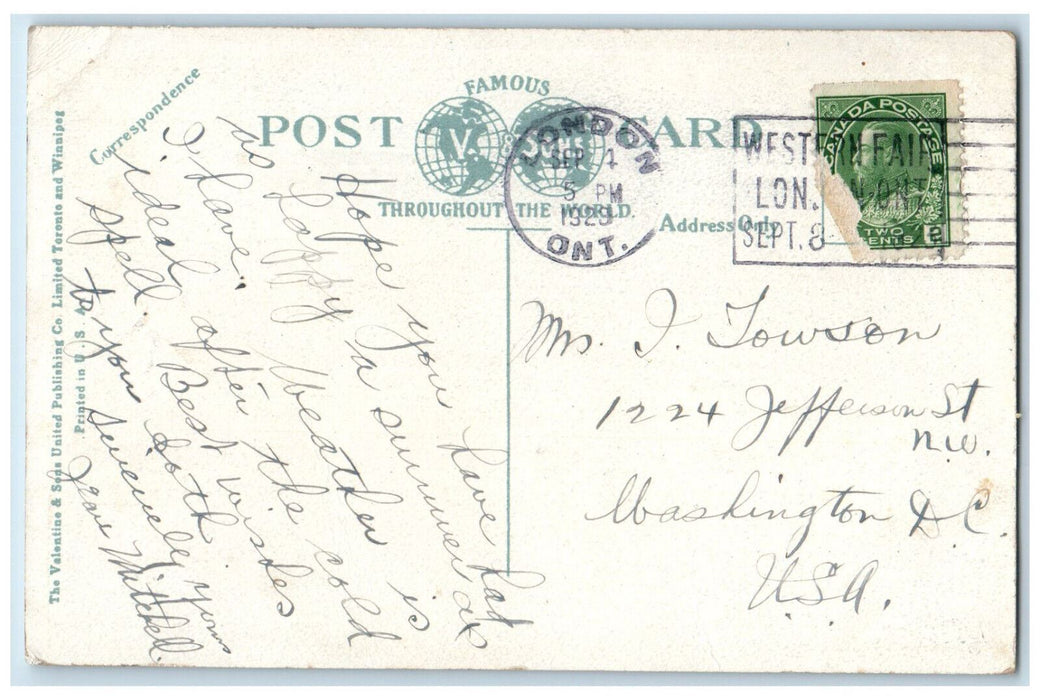 Correspondence
FAMOUS
POST CARD
V. & Sons
THROUGHOUT THE WORLD.
Address Only
The Valentine & Sons United Publishing Co. Limited Toronto and Winnipeg
Printed in U. S. A.
LONDON
SEP 4
5 PM
ONT.
WESTERN FAIR
LON. N ONT
SEPT. 8
CANADA POSTAGE
TWO
CENTS
Hope you have had
as happy a summer as
I have. Weather is
ideal after the cold
spell. Best wishes
to you both
Sincerely yours
Jean Mitchell.
Mrs. J. Towson
1224 Jefferson St
N.W.
Washington D.C.
U.S.A.